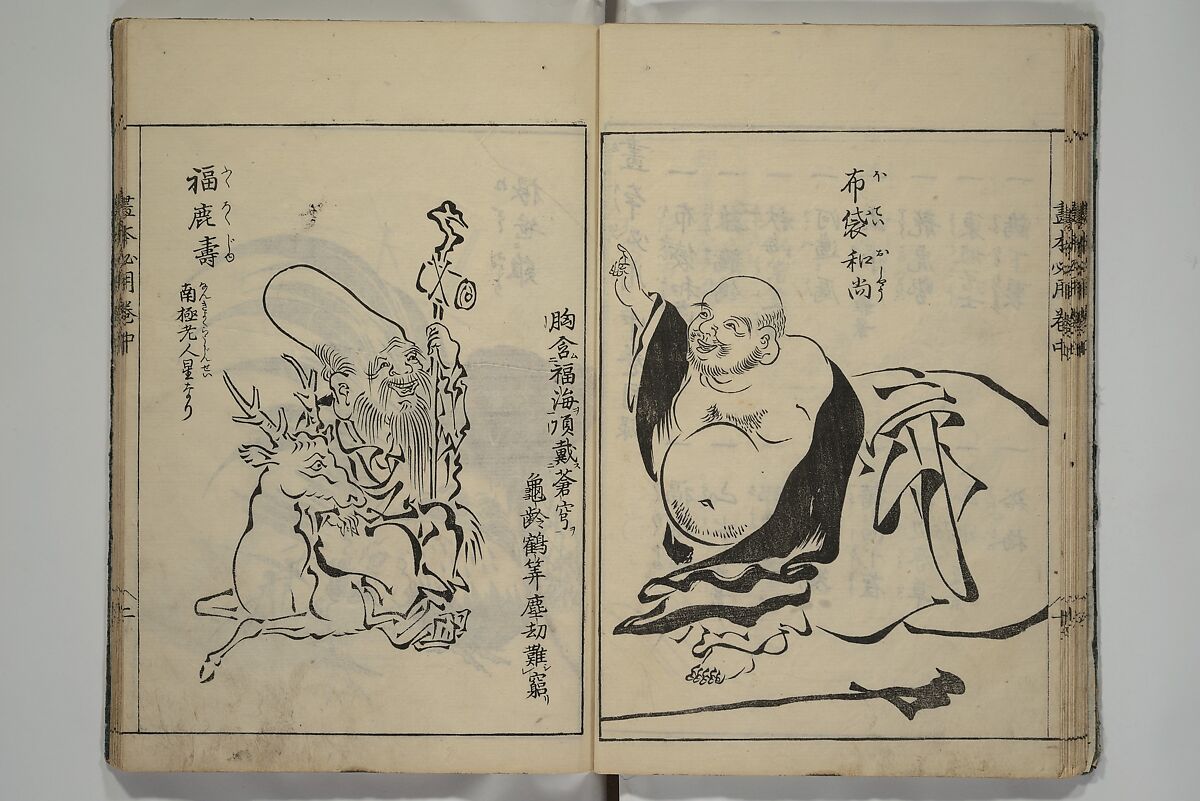 布袋和尚
胸含福海頂戴蒼穹
龜齡鶴筭塵劫難窮
福鹿壽
南極老人星なり
畫本必用 卷中
畫本必用 卷中